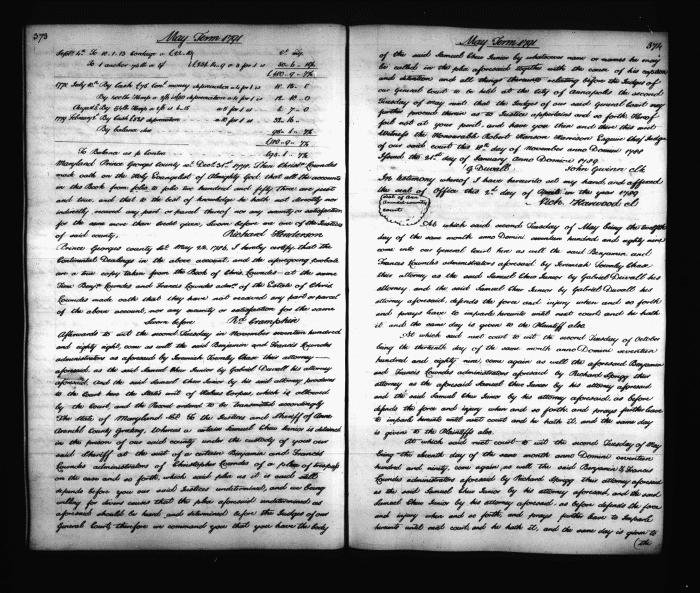 373
May Term 1791
To 1 anchor
1778 July 10th By Cash
By balance due
To Balance as p Contra
Maryland Prince Georges County sct. Decr. 31st 1778. Then Christr. Lowndes
made oath on the Holy Evangelist of Almighty God that all the accounts
in the Book from folio to folio two hundred and fifty three are just
and true, and that to the best of his knowledge he hath not directly nor
indirectly received any part or parcel thereof nor any security or satisfaction
for the same more than credit given. Sworn before me one of the Justices
of said county. Richard Henderson
Prince Georges county sct. May 22. 1786. I hereby certify that the
Continental Dealings in the above account, and the aforegoing probate
are a true copy taken from the Book of Chris Lowndes - at the same
time Benjn. Lowndes and Francis Lowndes admrs. of the Estate of Chris
Lowndes made oath that they have not received any part or parcel
of the above account, nor any security or satisfaction for the same
Sworn before Crampkin
Afterwards to wit the second Tuesday in November seventeen hundred
and eighty eight, come as well the said Benjamin and Francis Lowndes
administrators as aforesaid by Jeremiah Townley Chase their attorney
aforesaid, as the said Samuel Chew Junior by Gabriel Duvall his attorney
aforesaid, and the said Samuel Chew Junior by his said attorney produces
to the Court here the State's writ of Habeas Corpus, which is allowed
by the Court, and the Record ordered to be transmitted accordingly
The State of Maryland sct. To the Justices and Sheriff of Ann
Arundel County Greeting. Whereas a certain Samuel Chew Junior is detained
in the prison of our said county under the custody of you our
said Sheriff at the suit of a certain Benjamin and Francis
Lowndes administrators of Christopher Lowndes of a plea of trespass
on the case and so forth, which said plea as it is said still
depends before you our said Justices undetermined, and we being
willing for divers causes that the plea aforesaid undetermined as
aforesaid should be heard and determined before the Judges of our
General Court, therefore we command you that you have the body
374
May Term 1791
of the said Samuel Chew Junior by whatsoever name or names he may
be called in the plea aforesaid together with the cause of his caption
and detention and all things thereunto relating before the Judges of
our General Court to be held at the City of Annapolis the second
Tuesday of May next that the Judges of our said General Court may
further proceed therein as to Justice appertains and so forth. Hereof
fail not at your peril, and have you then and there this writ
Witness the Honourable Robert Hanson Harrison Esquire Chief Judge
of our said Court this 11th day of November anno Domini 1788
Issued the 21st day of January Anno Domini 1789.
G Duvall. John Gwinn Clk
In testimony whereof I have hereunto set my hand and affixed
the seal of office this 2d day of April in the year 1789
seal of Ann Arundel county court Nich. Harwood Cl
At which said second Tuesday of May being the twelfth
day of the same month anno Domini seventeen hundred and eighty nine
come into our General Court here as well the said Benjamin and
Francis Lowndes administrators aforesaid by Jeremiah Townley Chase
their attorney as the aforesaid Samuel Chew Junior by Gabriel Duvall his
attorney, and the said Samuel Chew Junior by Gabriel Duvall his
attorney aforesaid, defends the force and injury when and so forth
and prays leave to imparle hereunto until next court and he hath
it and the same day is given to the Plaintiff also.
At which said next court to wit the second Tuesday of October
being the thirteenth day of the same month anno Domini seventeen
hundred and eighty nine, come again as well the aforesaid Benjamin
and Francis Lowndes administrators aforesaid by Richard Sprigg their
attorney as the aforesaid Samuel Chew Junior by his attorney aforesaid
and the said Samuel Chew Junior by his attorney aforesaid, as before
defends the force and injury when and so forth, and prays further leave
to imparle hereunto until next court and he hath it, and the same day
is given to the Plaintiffs also.
At which said next court to wit the second Tuesday of May
being the eleventh day of the same month anno Domini seventeen
hundred and ninety, come again as well the said Benjamin & Francis
Lowndes administrators aforesaid by Richard Sprigg their attorney aforesaid
as the said Samuel Chew Junior by his attorney aforesaid, and the said
Samuel Chew Junior by his attorney aforesaid, as before defends the force
and injury when and so forth, and prays further leave to imparle
hereunto until next court and he hath it, and the same day is given to
(the